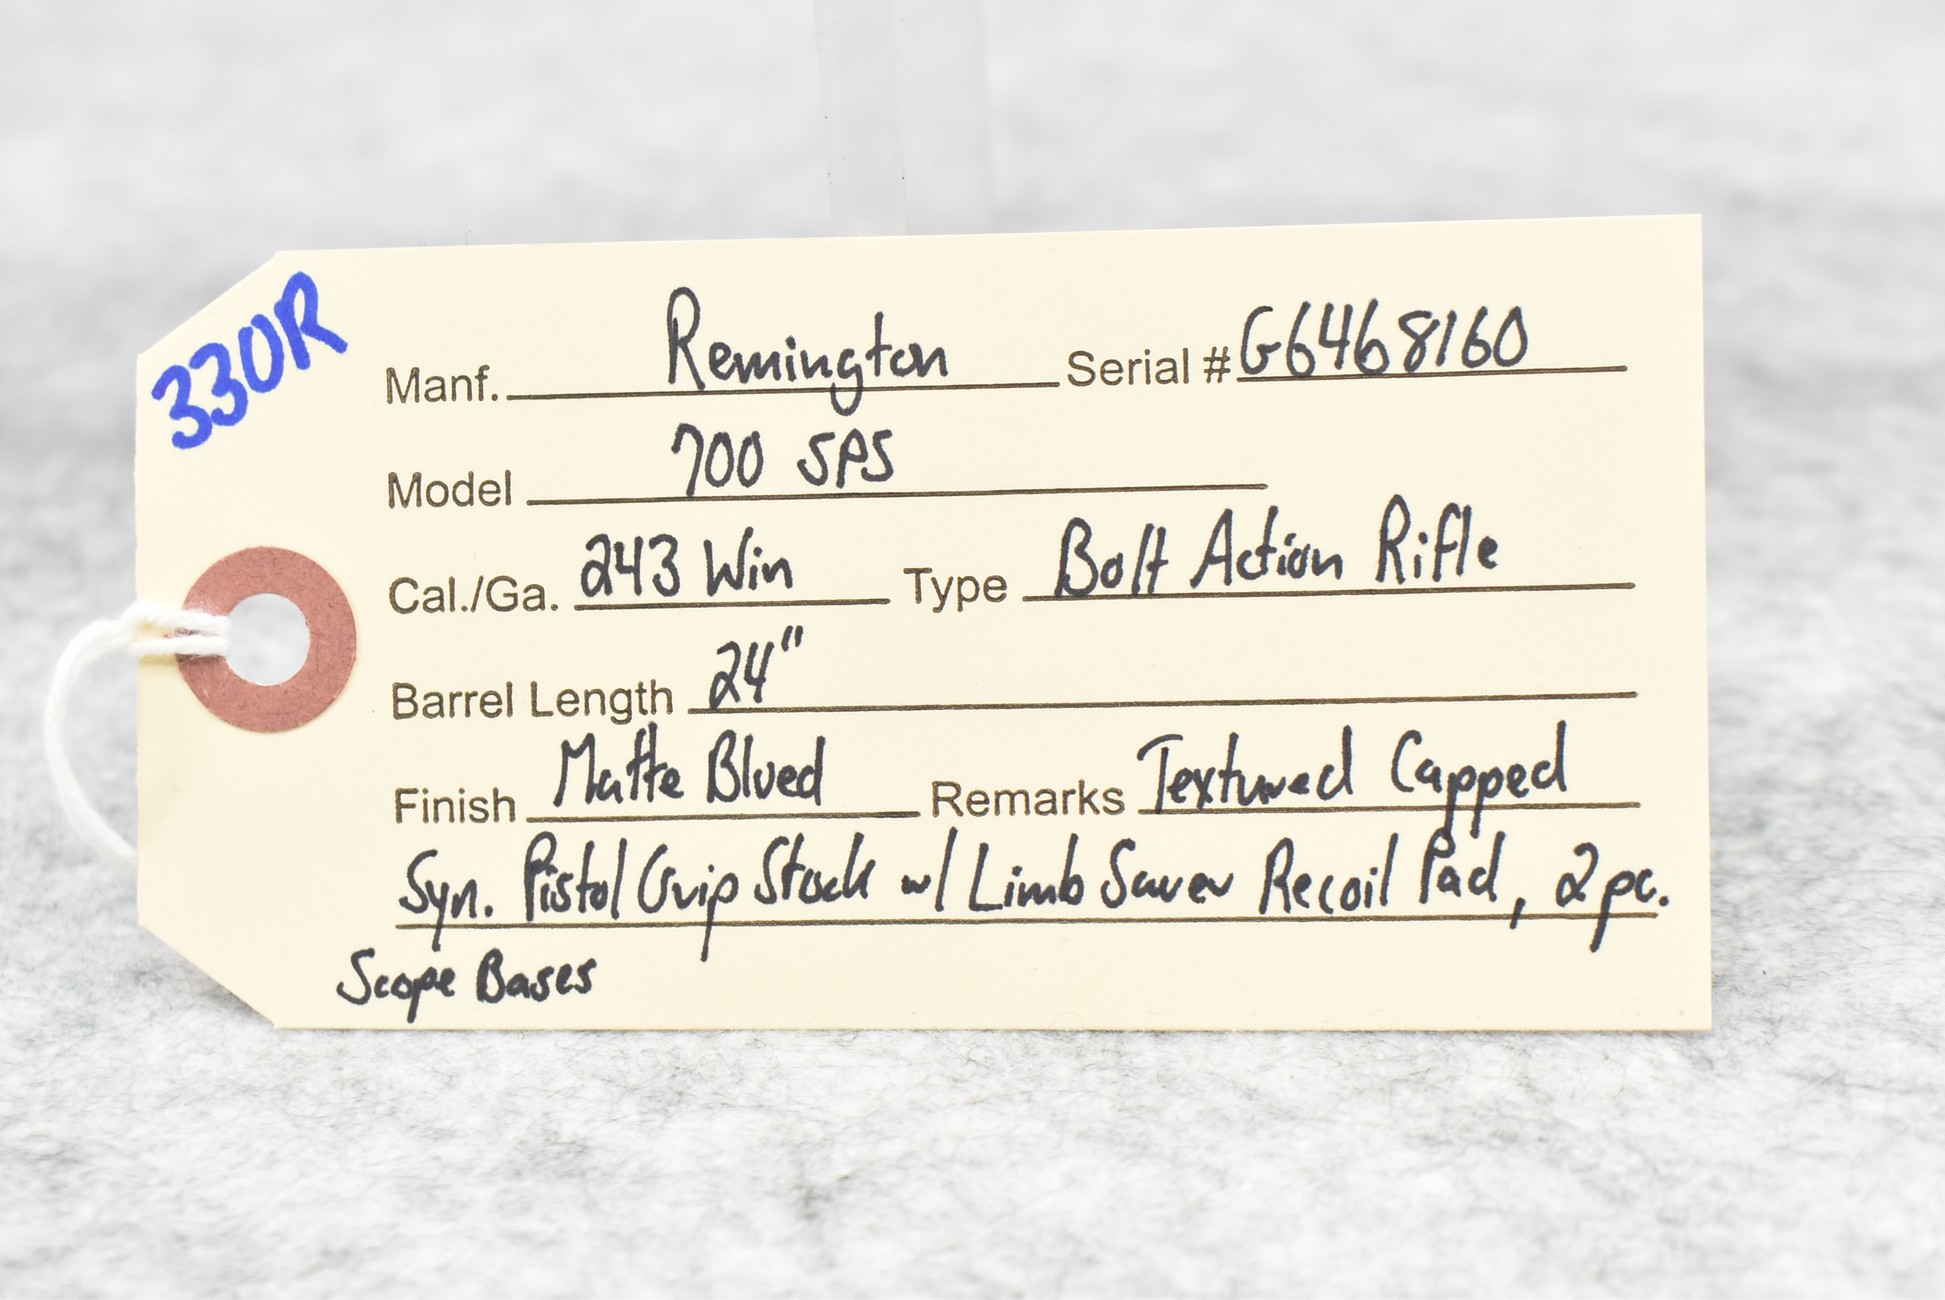 330R
Manf. Remington Serial # G6468160
Model 700 SPS
Cal./Ga. 243 Win Type Bolt Action Rifle
Barrel Length 24"
Finish Matte Blued Remarks Textured Capped
Syn. Pistol Grip Stock w/ Limb Saver Recoil Pad, 2 pc.
Scope Bases